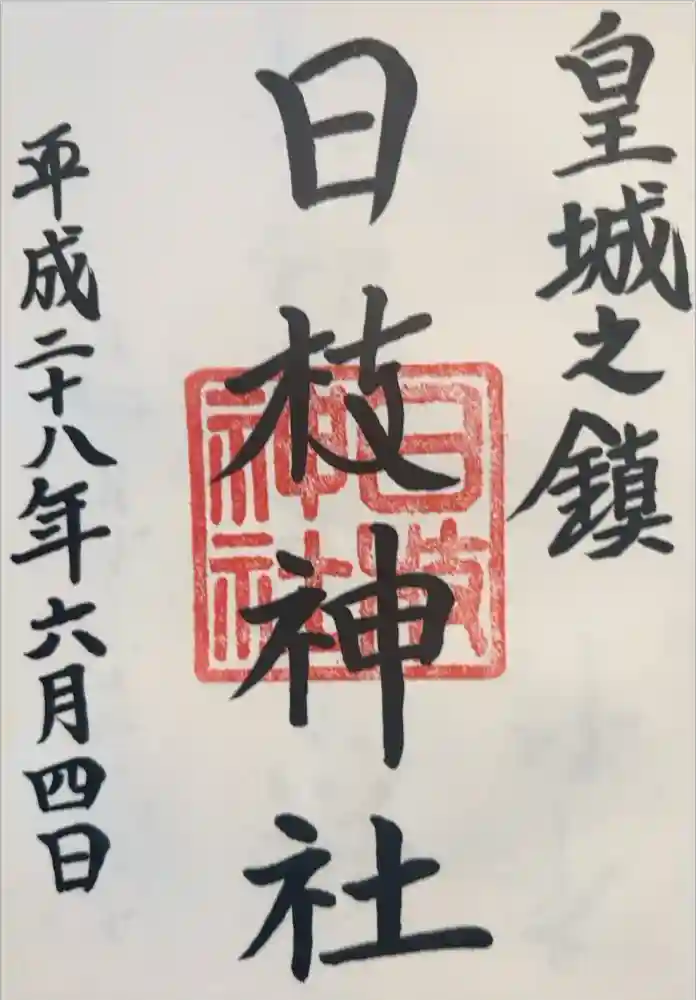 皇城之鎮
日枝神社
日枝
神社
平成二十八年六月四日